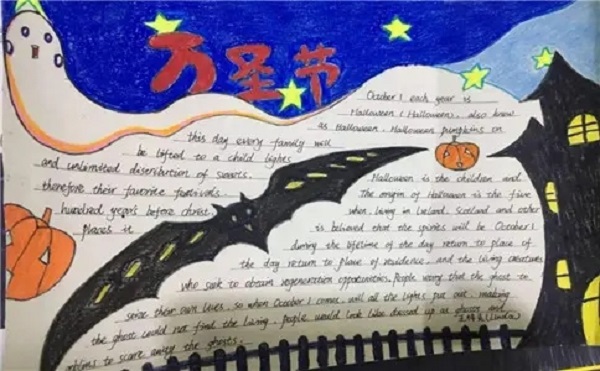 万圣节
October 1 each year is
Halloween (Halloween), also know
as Halloween. Halloween pumpkins on
this day every family will
be lifted to a child lights
and unlimited distribution of sweets.
therefore their favorite festivals.
hundred years before christ
places it
Halloween is the children and
The origin of Halloween is the five
when living in Ireland, Scotland and other
is believed that the spirits will be October 1
during the lifetime of the day return to place of
the day return to place of residence, and the living creatures
who seek to obtain regeneration opportunities. People worry that the ghost to
seize their own lives, so when October 1 comes, will all the lights put out, making
the ghost could not find the living, people would look like dressed up as ghosts and
goblins to scare away the ghosts.
(Linda)